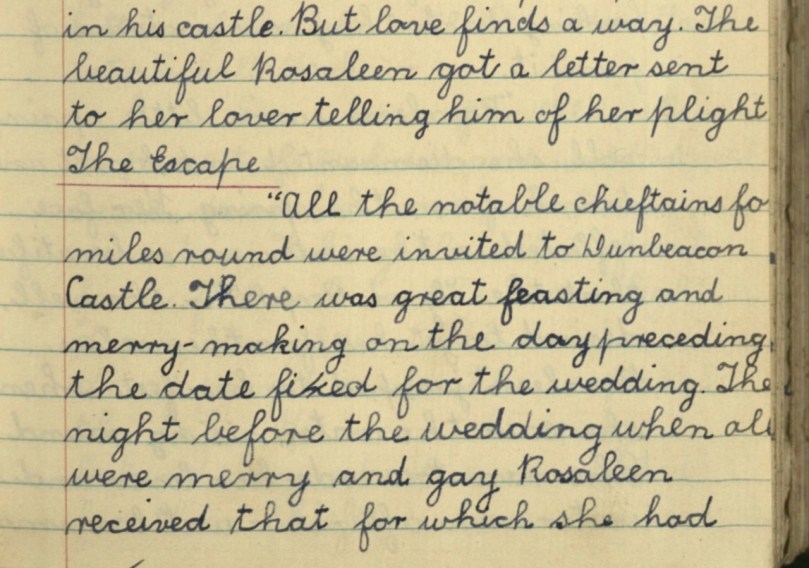 in his castle. But love finds a way. The
beautiful Rosaleen got a letter sent
to her lover telling him of her plight
The Escape
"All the notable chieftains fo
miles round were invited to Dunbeacon
Castle. There was great feasting and
merry-making on the day preceding
the date fixed for the wedding. The
night before the wedding when all
were merry and gay Rosaleen
received that for which she had